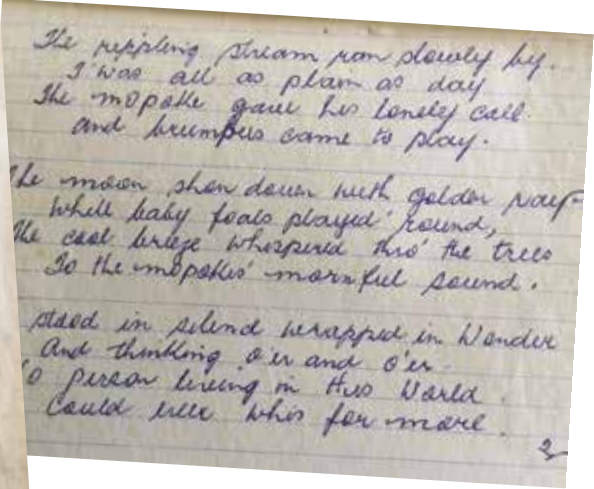 The rippling stream ran slowly by.
T'was all as plain as day
The mopoke gave his lonely call.
and brumbies came to play.
The moon shon down with golden rays
While baby foals played 'round,
The cool breeze whispered thro' the trees
To the mopokes' mornful sound.
stood in silence wrapped in Wonder
And thinking o'er and o'er
No person living in this World.
Could ever whis for more.
2